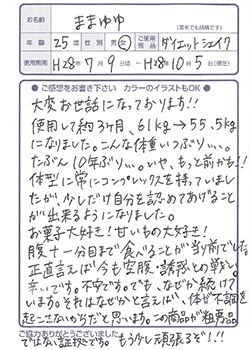 お名前
ままゆゆ
(匿名でも結構です)
年齢 25歳 性別 男・女 ご使用商品 ダイエットシェイク
使用期間 H28年7月9日頃 ~ H28年10月5日(現在)
●ご感想をお書き下さい カラーのイラストもOK●
大変お世話になっております!!
使用して約3ヶ月、61kg→55.5kg
になりました。こんな体重いつぶり…。
たぶん10年ぶり…。いや、もっと前かも!!
体型に常にコンプレックスを持っていまし
たが、少しだけ自分を認めてあげること
が出来るようになりました。
お菓子大好き!甘いもの大好き!
腹十一分目まで食べることが当り前でした。
正直言えば今も空腹・誘惑との戦い。
辛いです。不安です。でも、なぜか続けて
います。それはなぜかと言えば、体が不調を
起こさないからだと思います。この商品が粗悪品
ご協力ありがとうございました
ではない証拠です。もう少し頑張るぞ!!